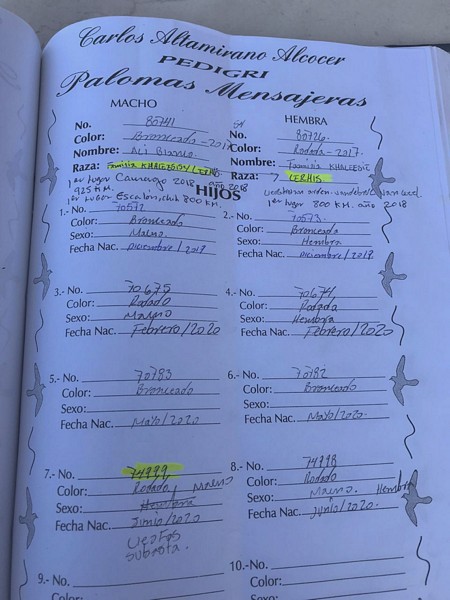 Carlos Altamirano Alcocer
PEDIGRI
Palomas Mensajeras
MACHO
No. 80741
Color: Bronceado - 2017
Nombre: Ali Blanco
Raza: Familia KHALEESSY/
1er lugar Camargo 2018
925 KM. año 2018
1er lugar Escalón, chih 800 km.
HEMBRA
No. 80726
Color: Rodado - 2017.
Nombre: Familia KHALEESSI
Raza: LERHIS
1er lugar 800 KM. año 2018
HIJOS
1.- No. 70572
Color: Bronceado
Sexo: Macho
Fecha Nac. Diciembre/2019
2.- No. 70573
Color: Bronceada
Sexo: Hembra
Fecha Nac. Diciembre/2019
3.- No. 70675
Color: Rodado
Sexo: Macho
Fecha Nac. Febrero/2020
4.- No. 70674
Color: Rodada
Sexo: Hembra
Fecha Nac. Febrero/2020
5.- No. 70783
Color: Bronceado
Sexo:
Fecha Nac. Mayo/2020
6.- No. 70782
Color: Bronceado
Sexo:
Fecha Nac. Mayo/2020.
7.- No. 74999
Color: Rodado Macho
Sexo: Hembra
Fecha Nac. Junio/2020
subasta.
8.- No. 74998
Color: Rodado
Sexo: Macho. Hembra
Fecha Nac. Junio/2020.
9.- No.
Color:
10.- No.
Color: